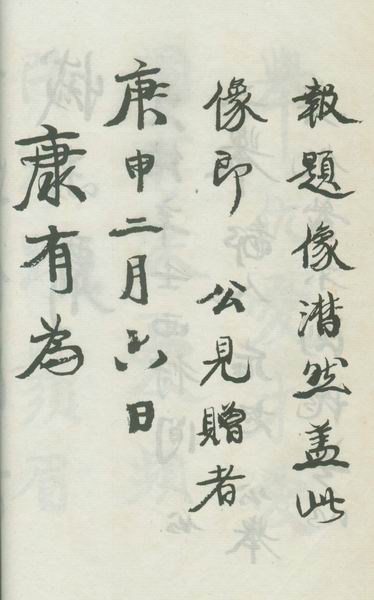 報題像潸然盖此
像即 公見贈者
庚申二月六日
康有為